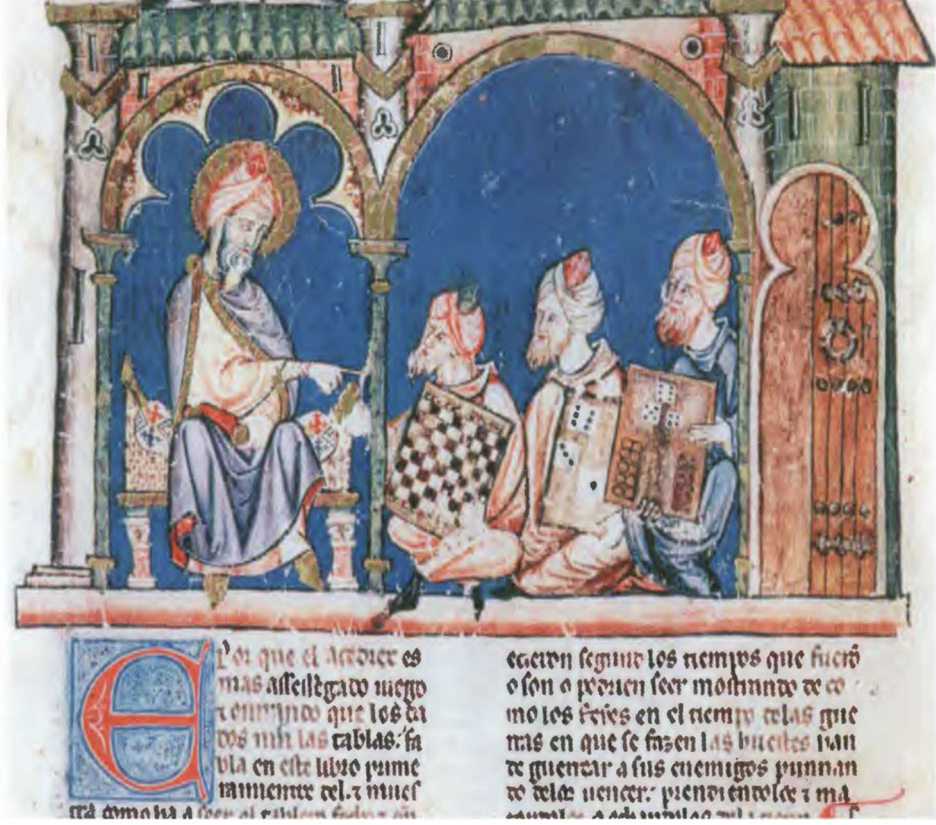 E
Por que el acedrex es
mas assessegado iuego
τ onrrado que los da
dos nin las tablas. fa
bla en este libro prime
ramiente del. τ mues
tra como ha a seer el
ecieron segunt los tiempos que fueron
o son o podrien seer mostrando de co
mo los reyes en el tiempo delas gue
rras en que se fazen las huestes han
de guerrear a sus enemigos punnan
do delos uencer. prendiendolos τ ma